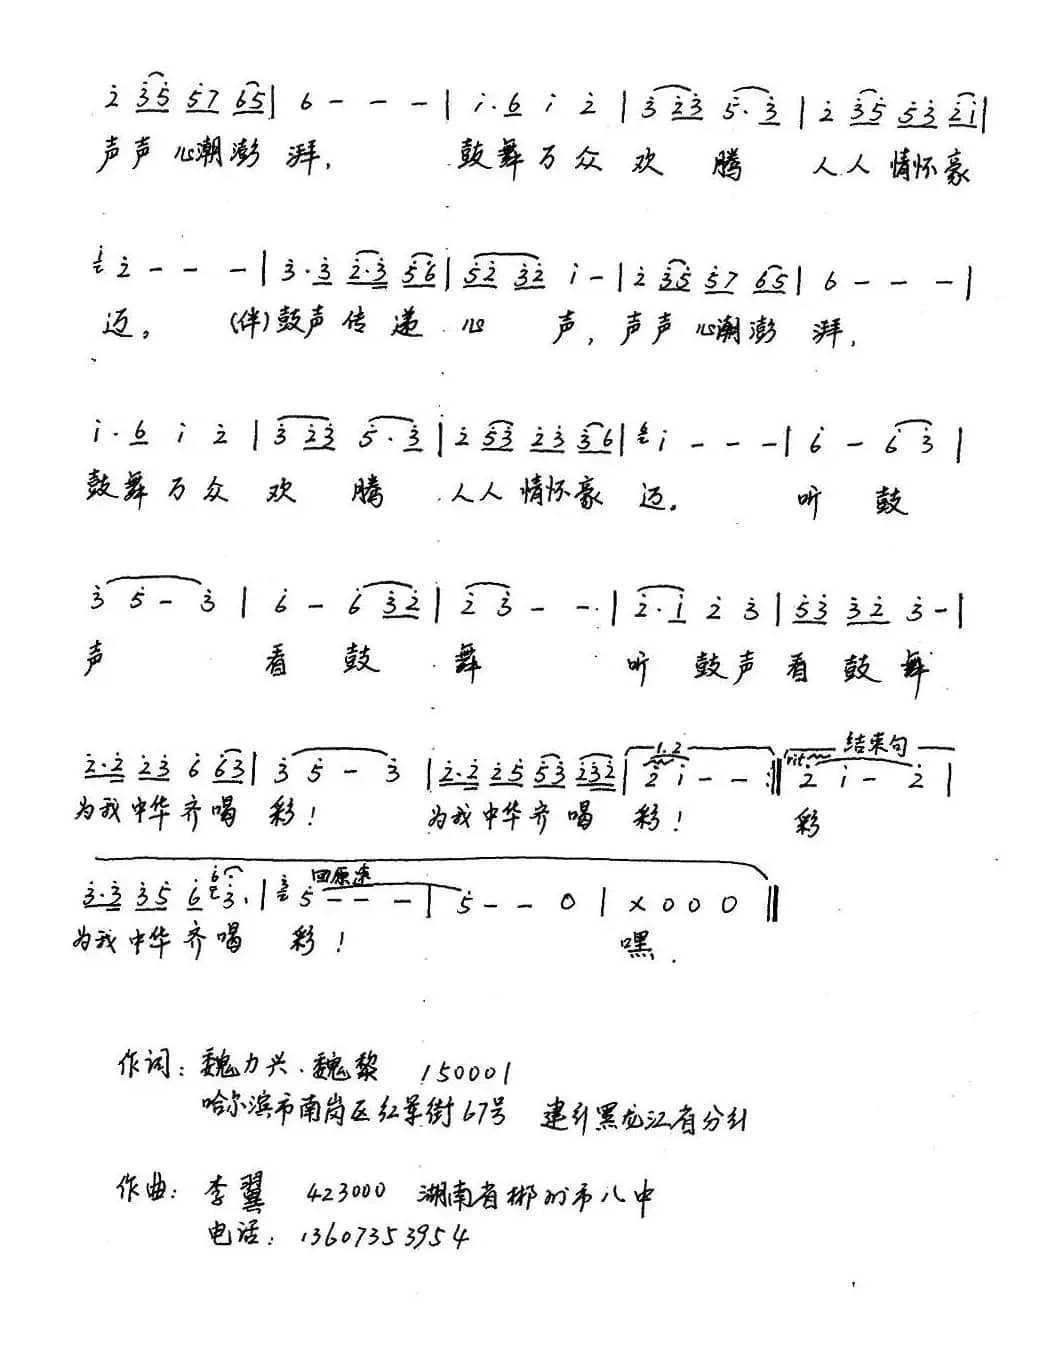 2̇ 3̇5̇ 5̇7 65 | 6 - - - | i·6 i 2̇ | 3̇ 2̇3̇ 5̇·3̇ | 2̇ 3̇5̇ 5̇3̇ 2̇i |
声声心潮澎湃, 鼓舞万众欢腾 人人情怀豪
2̇ - - - | 3̇·3̇ 2̇·3̇ 5̇6̇ | 5̇2̇ 3̇2̇ i - | 2̇ 3̇5̇ 5̇7 65 | 6 - - - |
迈。 (伴)鼓声传递心声, 声声心潮澎湃,
i·6 i 2̇ | 3̇ 2̇3̇ 5̇·3̇ | 2̇ 5̇3̇ 2̇3̇ 3̇6 | i - - - | 6̇ - 6̇ 3̇ |
鼓舞万众欢腾 人人情怀豪迈。 听鼓
3̇ 5̇ - 3̇ | 6̇ - 6̇ 3̇2̇ | 2̇ 3̇ - - | 2̇·i 2̇ 3̇ | 5̇3̇ 3̇2̇ 3̇ - |
声 看鼓舞 听鼓声看鼓舞
1.2 rit. 结束句
2̇·2̇ 2̇3̇ 6̇ 6̇3̇ | 3̇ 5̇ - 3̇ | 2̇·2̇ 2̇5̇ 5̇3̇ 2̇3̇2̇ | 2̇ i - - :‖ 2̇ i - 2̇ |
为我中华齐喝彩! 为我中华齐喝彩! 彩
回原速
3̇·3̇ 3̇5̇ 6̇ 3̇· | 5̇ - - - | 5̇ - - 0 | X 0 0 0 ‖
为我中华齐喝彩! 嘿.
作词: 魏力兴.魏黎 150001
哈尔滨市南岗区红军街67号 建行黑龙江省分行
作曲: 李翼 423000 湖南省郴州市八中
电话: 13607353954